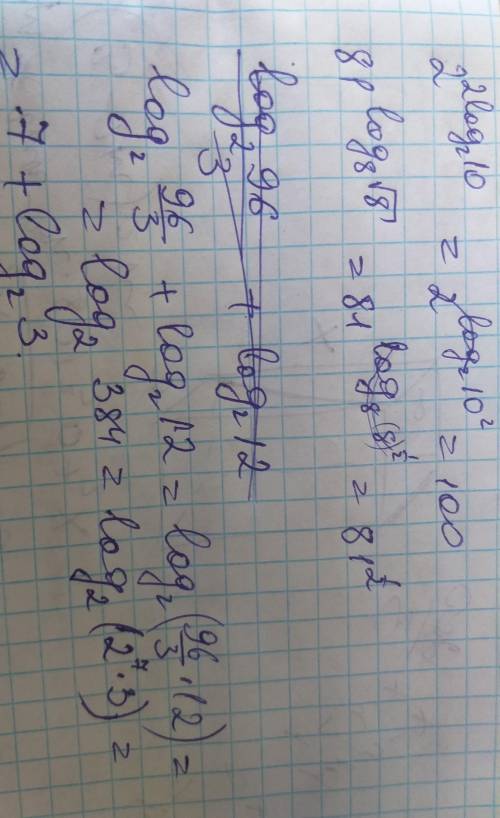 2^{2log₂10} = 2^{log₂10²} = 100
81^{log₈√8} = 81^{log₈(8)^{1/2}} = 81^{1/2}
log₂96/3 + log₂12
log₂ 96/3 + log₂12 = log₂(96/3 · 12) =
= log₂ 384 = log₂(2⁷·3) =
= 7 + log₂3.